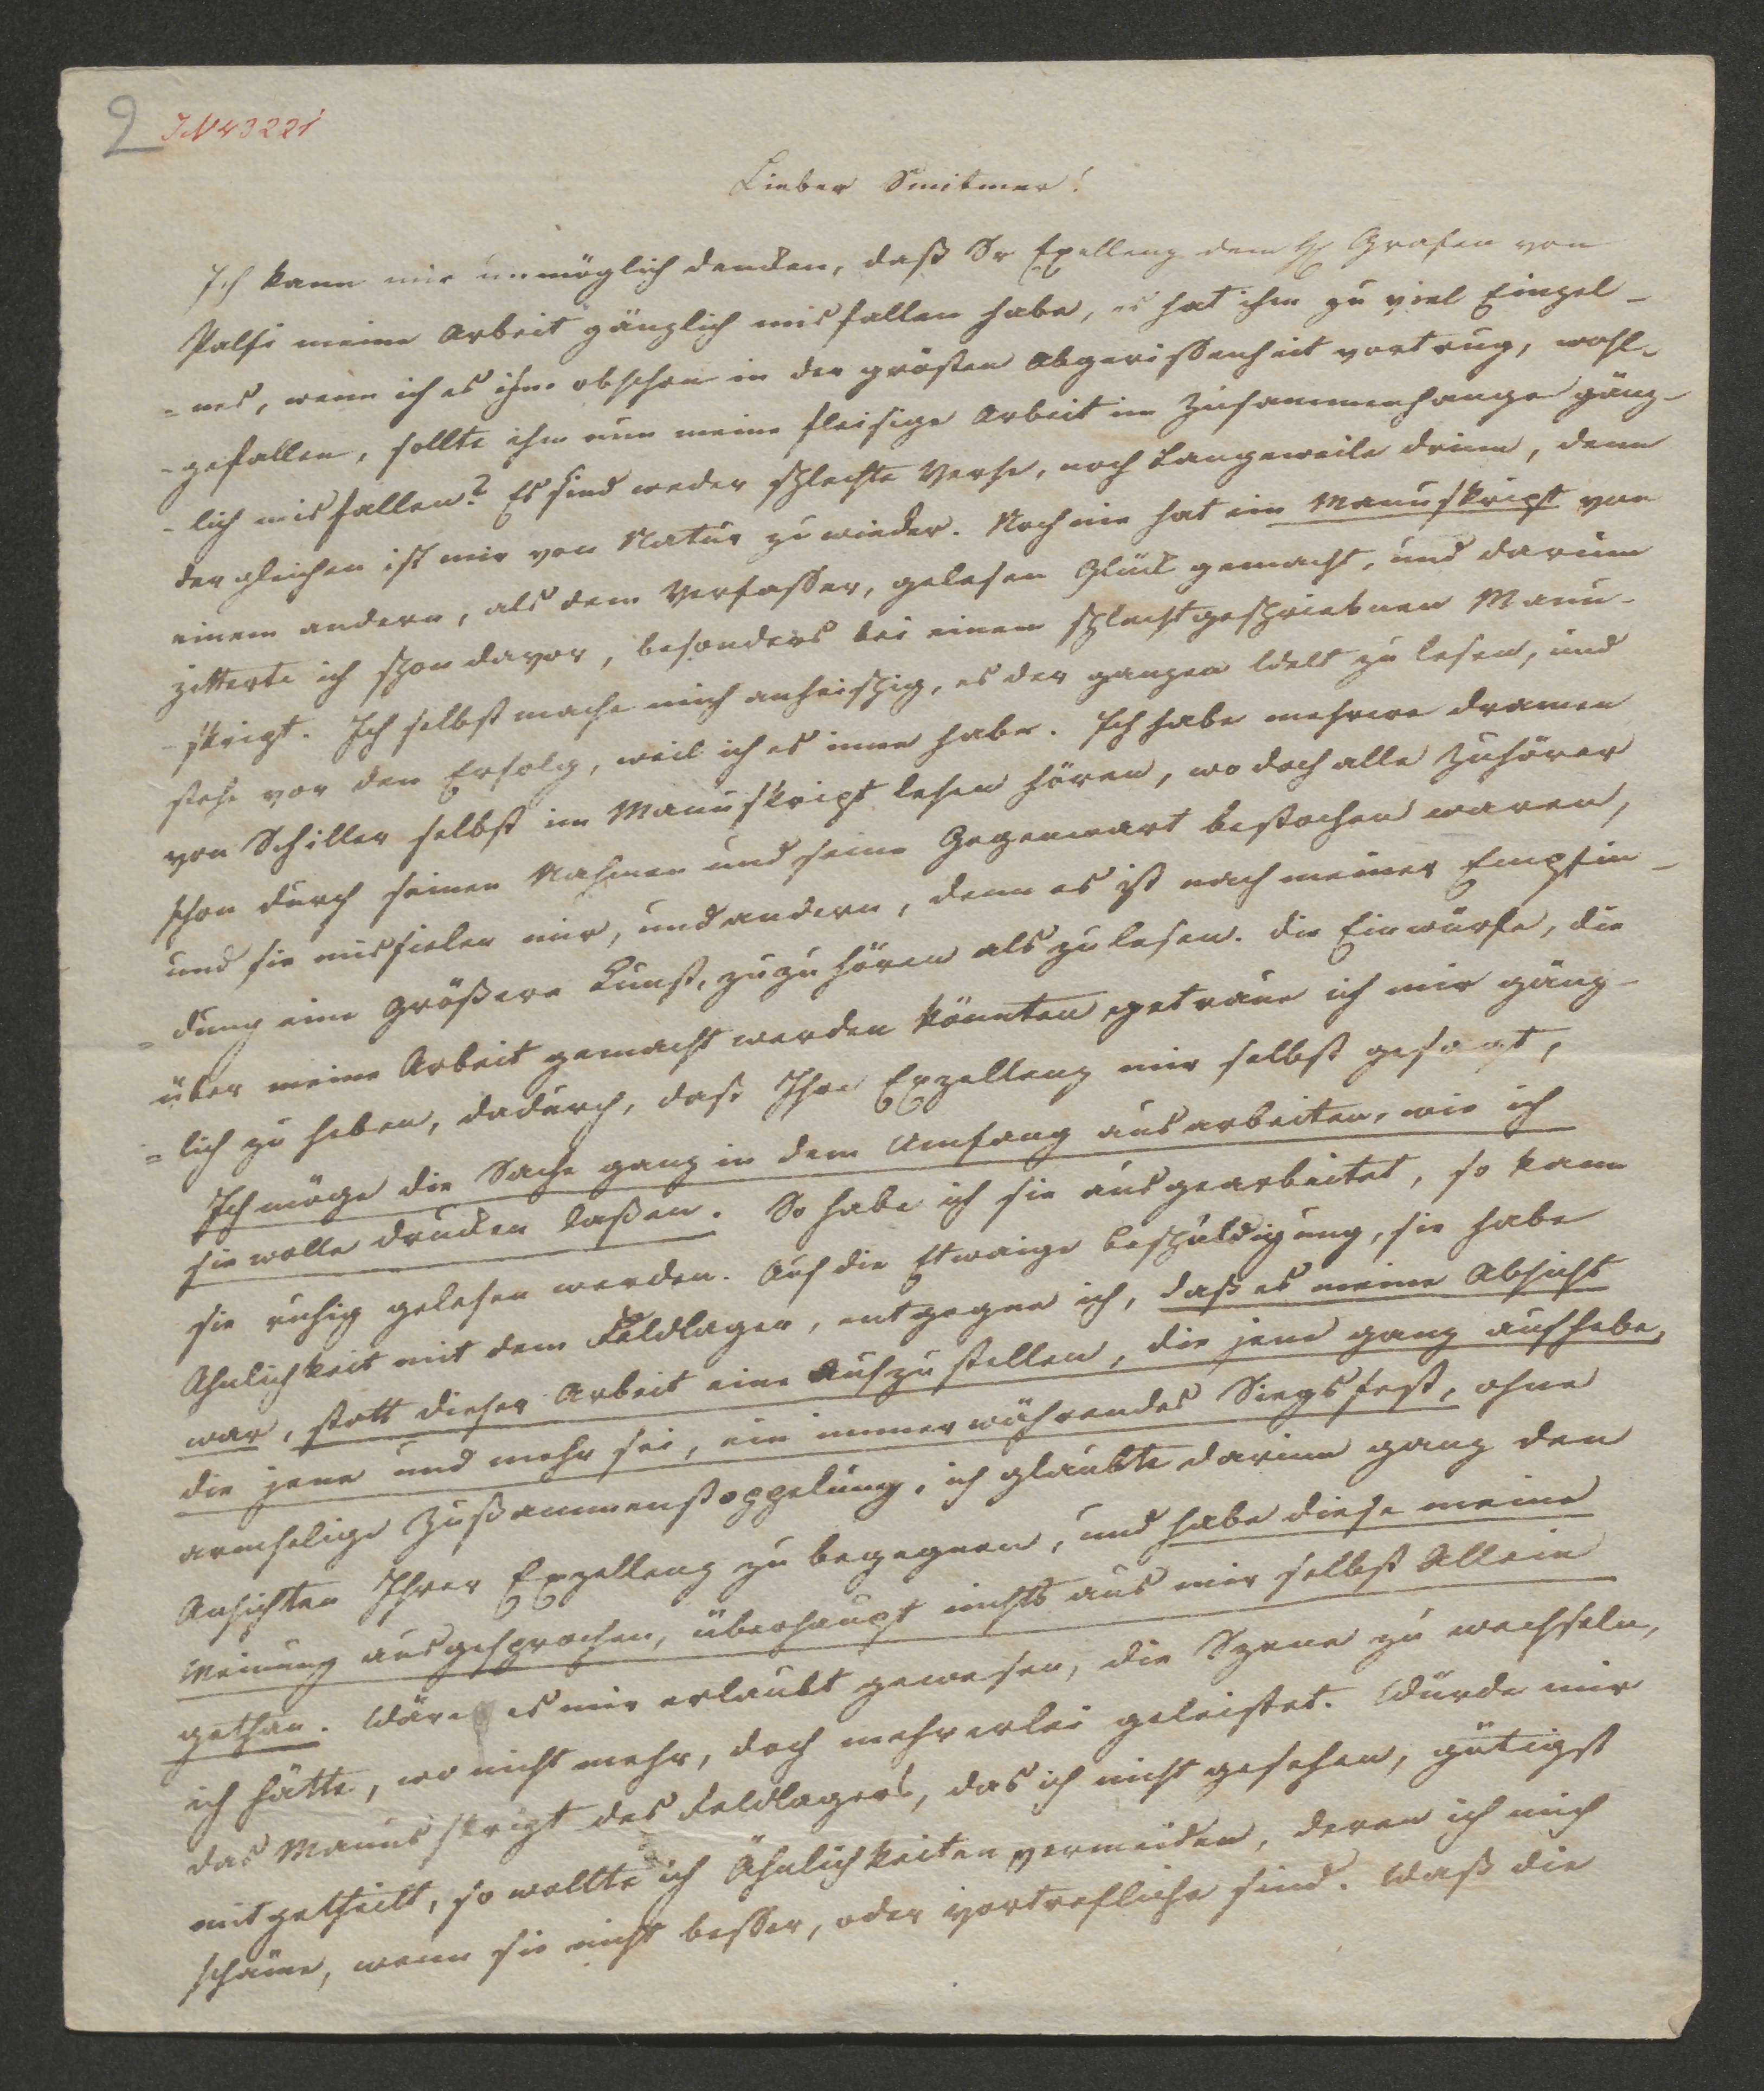 2 IN 43221
Lieber Smitmer!
Ich kann mir unmöglich denken, daß Sr Exellenz dem H Grafen von
Palfi meine Arbeit gänzlich misfallen habe, es hat ihm zu viel Einzel-
=nes, wenn ich es ihm obschon in der grösten Abgerissenheit vortrug, wohl-
-gefallen, sollte ihm nun meine fleisige Arbeit im Zusammenhange gänz-
-lich misfallen? Es sind weder schlechte Verse, noch Langeweile drinn, denn
dergleichen ist mir von Natur zuwieder. Noch nie hat ein Manuskript von
einem andern, als dem Verfasser, gelesen Glück gemacht, und darum
zitterte ich schon davor, besonders bei einem schlechtgeschriebnen Manu-
-skript. Ich selbst mache mich anheischig, es der ganzen Welt zu lesen, und
stehe vor den Erfolg, weil ich es inne habe. Ich habe mehrere Dramen
von Schiller selbst im Manuskript lesen hören, wo doch alle Zuhörer
schon durch seinen Nahmen und seine Gegenwart bestochen waren,
und sie misfielen mir, und andern, denn es ist nach meiner Empfin-
=dung eine größere Kunst, zuzuhören als zu lesen. Die Einwürfe, die
über meine Arbeit gemacht werden könnten getraue ich mir gänz-
=lich zu heben, dadurch, daß Ihre Exzellenz mir selbst gesagt,
Ich möge die Sache ganz in dem Umfang ausarbeiten, wie ich
sie wolle drucken laßen. So habe ich sie ausgearbeitet, so kann
sie ruhig gelesen werden. Auf die Etwaige Beschuldigung, sie habe
Ähnlichkeit mit dem Feldlager, entgegne ich, daß es meine Absicht
war, statt dieser Arbeit eine aufzustellen, die jene ganz aufhebe,
die jene und mehr sei, ein immerwährendes Siegsfest, ohne
armselige Zusammenstoppelung, ich glaubte darinn ganz den
Ansichten Ihrer Exzellenz zu begegnen, und habe diese meine
Meinung ausgesprochen, überhaupt nichts aus mir selbst Allein
gethan. Wäre es mir erlaubt gewesen, die Szene zu wechseln,
ich hätte, wo nicht mehr, doch mehrerlei geleistet. Würde mir
das Manuskript des Feldlagers, das ich nicht gesehen, gütigst
mitgetheilt, so wollte ich Ähnlichkeiten vermeiden, deren ich mich
schäme, wenn sie nicht besser, oder vortreflicher sind. Daß die